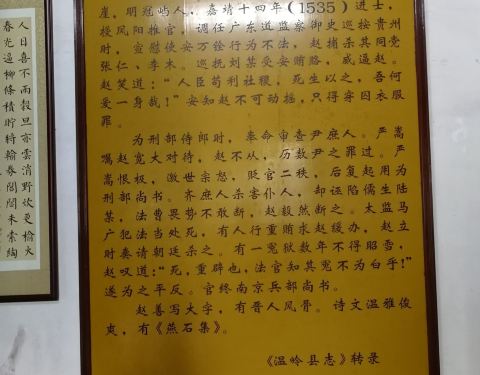 人日喜不雨穀旦亦雲消野炊更榆火
春光遍柳條積貯特輸
崖，明冠屿人，嘉靖十四年（1535）进士，
授凤阳推官，调任广东道监察御史巡按贵州
时，宣慰使安万铨行为不法，赵捕杀其同党
张仁、李木，巡抚刘某受安贿略，威逼赵。
赵笑道：“人臣苟利社稷，死生以之，吾何
爱一身哉！”安知赵不可动摇，只得穿因衣服
罪。
为刑部侍郎时，奉命审查尹庶人。严嵩
嘱赵宽大对待，赵不从，历数尹之罪过。严
嵩恨极，激世宗怒，贬官二秩，后复起用为
刑部尚书。齐庶人杀害仆人，却诬陷儒生陆
某，法曹畏势不敢断，赵毅然断之。太监马
广犯法当处死，有人行重贿求赵缓办，赵立
时奏请朝廷杀之。有一冤狱数年不得昭雪，
赵叹道：“死，重辟也，法官知其冤不为白乎！”
遂为之平反。官终南京兵部尚书。
赵善写大字，有晋人风骨。诗文温雅俊
爽，有《燕石集》。
《温岭县志》转录